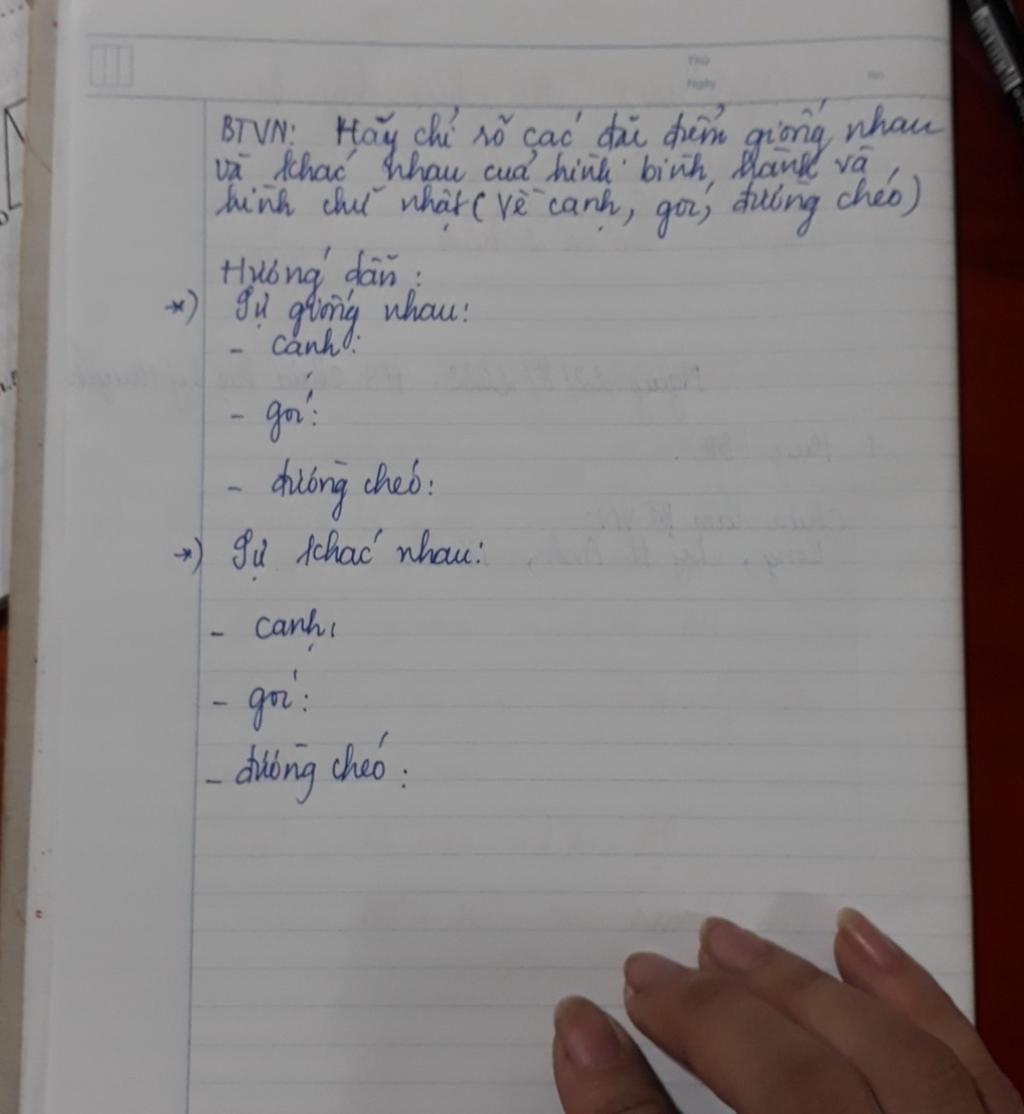 Thứ
Ngày
No
BTVN: Hãy chỉ rõ các đặc điểm giống nhau
và khác nhau của hình bình hành và
hình chữ nhật (về cạnh, góc, đường chéo)
Hướng dẫn:
*) Sự giống nhau:
- cạnh:
- góc:
- đường chéo:
*) Sự khác nhau:
- cạnh:
- góc:
- đường chéo: